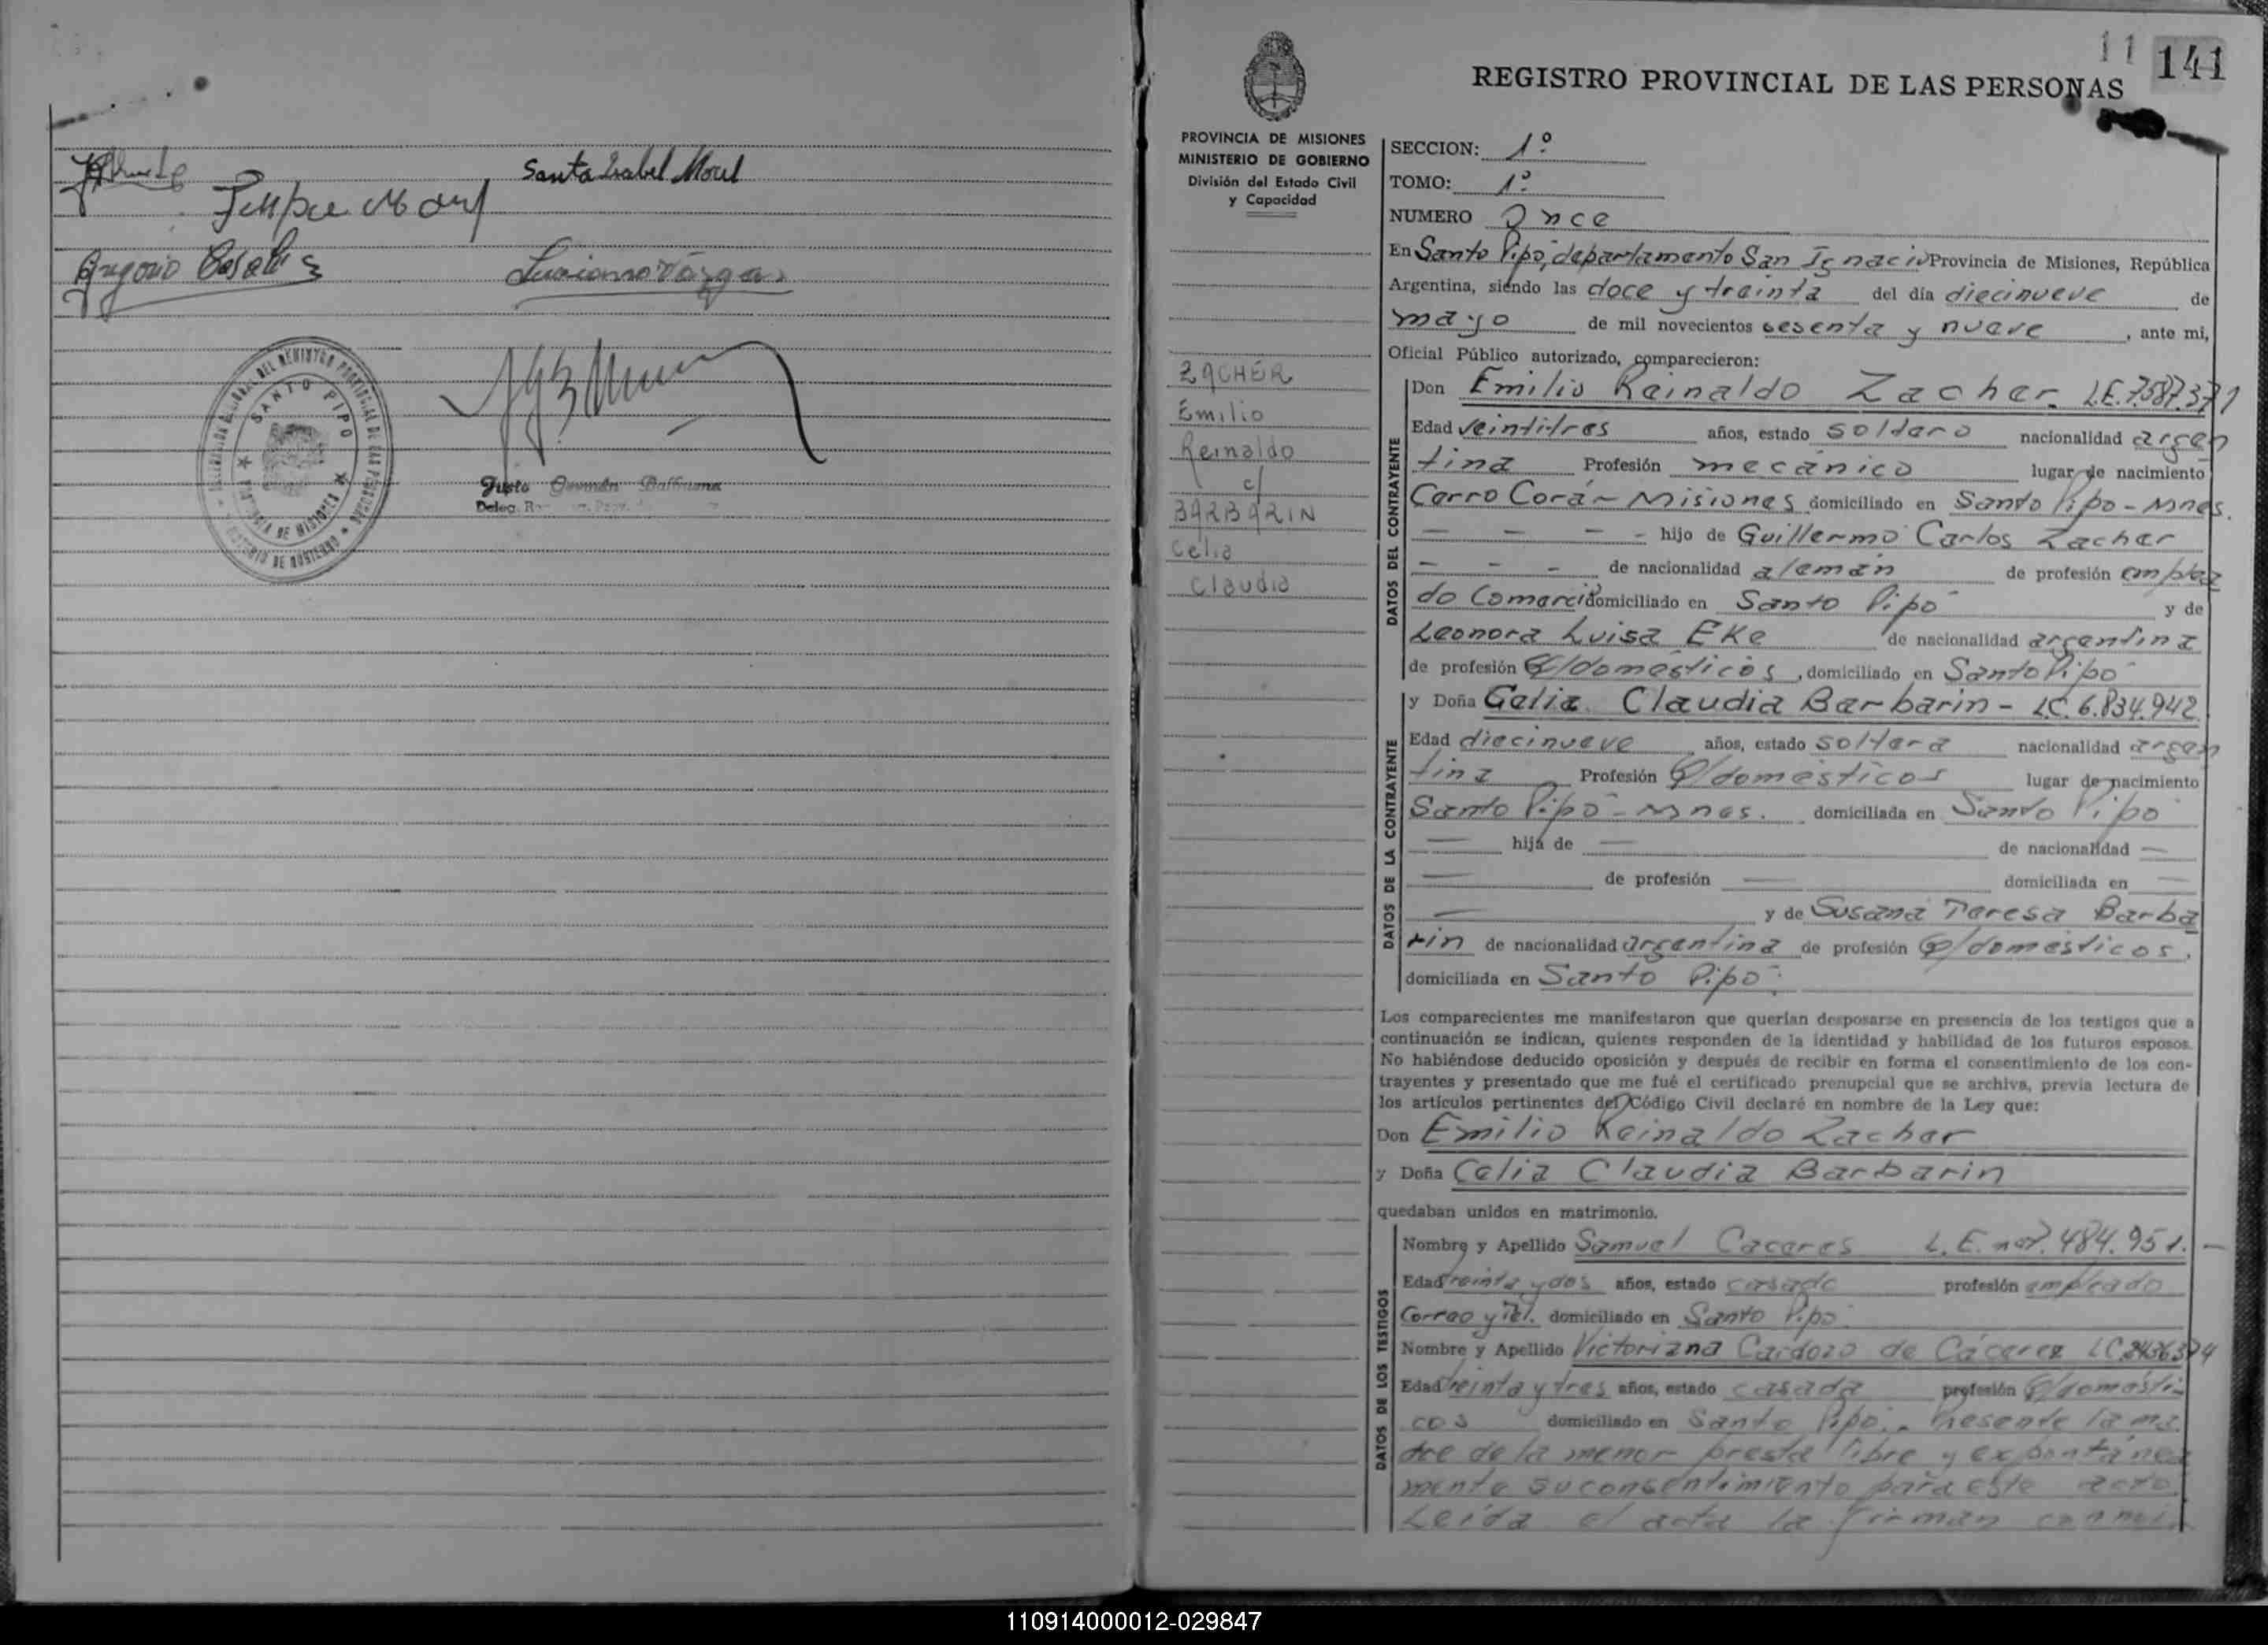 Santa Isabel Morel
Gregorio
Luciano Vargas
SANTO PIPO
Justo Germán
Deleg.
11 141
REGISTRO PROVINCIAL DE LAS PERSONAS
PROVINCIA DE MISIONES
MINISTERIO DE GOBIERNO
División del Estado Civil
y Capacidad
ZACHER
Emilio
Reinaldo
c/
BARBARIN
Celia
Claudia
SECCION: 1º
TOMO: 1º
NUMERO Once
En Santo Pipó, departamento San Ignacio Provincia de Misiones, República
Argentina, siendo las doce y treinta del día diecinueve de
mayo de mil novecientos sesenta y nueve, ante mi,
Oficial Público autorizado, comparecieron:
DATOS DEL CONTRAYENTE
Don Emilio Reinaldo Zacher L.E. 7.587.371
Edad veintitres años, estado soltero nacionalidad argen
tina Profesión mecánico lugar de nacimiento
Cerro Corá - Misiones domiciliado en Santo Pipo - Mnes.
— — — - hijo de Guillermo Carlos Zacher
- - - de nacionalidad alemán de profesión emplea
do Comercio domiciliado en Santo Pipó y de
Leonora Luisa Eke de nacionalidad argentina
de profesión Q/domésticos, domiciliado en Santo Pipó
DATOS DE LA CONTRAYENTE
y Doña Celia Claudia Barbarin - L.C. 6.834.942
Edad diecinueve años, estado soltera nacionalidad argen
tina Profesión Q/domésticos lugar de nacimiento
Santo Pipó - Mnes. domiciliada en Santo Pipó
— hija de — de nacionalidad —
— de profesión — domiciliada en —
— y de Susana Teresa Barba
rin de nacionalidad argentina de profesión Q/domésticos,
domiciliada en Santo Pipó.
Los comparecientes me manifestaron que querían desposarse en presencia de los testigos que a
continuación se indican, quienes responden de la identidad y habilidad de los futuros esposos.
No habiéndose deducido oposición y después de recibir en forma el consentimiento de los con-
trayentes y presentado que me fué el certificado prenupcial que se archiva, previa lectura de
los artículos pertinentes del Código Civil declaré en nombre de la Ley que:
Don Emilio Reinaldo Zacher
y Doña Celia Claudia Barbarin
quedaban unidos en matrimonio.
DATOS DE LOS TESTIGOS
Nombre y Apellido Samuel Caceres L.E. nº 7.484.951.-
Edad treinta y dos años, estado casado profesión empleado
Correo y Tel. domiciliado en Santo Pipó
Nombre y Apellido Victoriana Cardozo de Cácerez LC.
Edad treinta y tres años, estado casada profesión Q/domésti-
cos domiciliado en Santo Pipó. Presente la ma
dre de la menor presta libre y expontánea
mente su consentimiento para este acto
Leída el acta la firman conmi
110914000012-029847